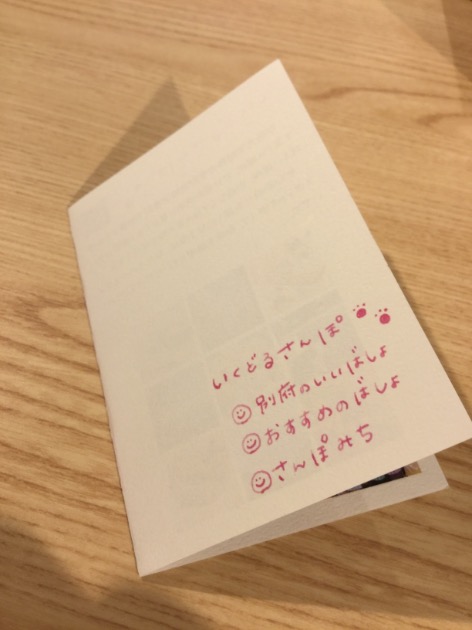 いくどるさんぽ
別府のいいばしょ
おすすめのばしょ
さんぽみち